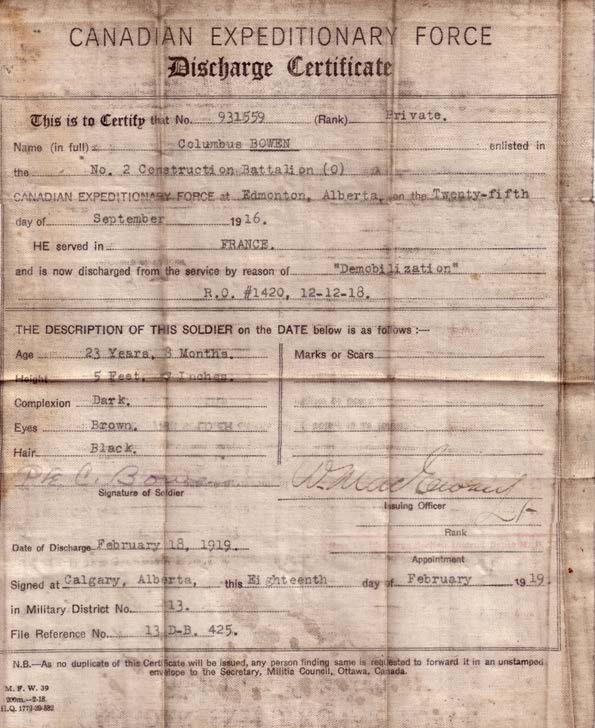 CANADIAN EXPEDITIONARY FORCE
Discharge Certificate
This is to Certify that No. 931559 (Rank) Private.
Name (in full) Columbus BOWEN enlisted in
the No. 2 Construction Battalion (O)
CANADIAN EXPEDITIONARY FORCE at Edmonton, Alberta, on the Twenty-fifth
day of September 1916.
HE served in FRANCE.
and is now discharged from the service by reason of "Demobilization"
R.O. #1420, 12-12-18.
THE DESCRIPTION OF THIS SOLDIER on the DATE below is as follows :—
Age 23 Years, 8 Months. Marks or Scars
Height 5 Feet, 7 Inches.
Complexion Dark.
Eyes Brown.
Hair Black.
Pte C. Bowen
Signature of Soldier
Issuing Officer
Lt
Rank
Date of Discharge February 18, 1919.
Appointment
Signed at Calgary, Alberta, this Eighteenth day of February 1919.
in Military District No. 13.
File Reference No. 13 D-B. 425.
N.B.—As no duplicate of this Certificate will be issued, any person finding same is requested to forward it in an unstamped
envelope to the Secretary, Militia Council, Ottawa, Canada.
M. F. W. 39
200m.—2-18.
H.Q. 1772-39-882